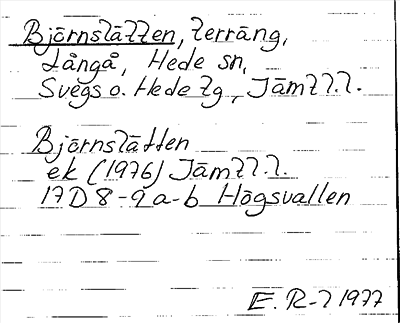 Björnslätten, terräng,
Långå, Hede sn,
Svegs o. Hede tg, Jämtl. l.
Björnslätten
ek (1976) Jämtl. l.
17D 8-9 a-b Högsvallen
E. R-l 1977